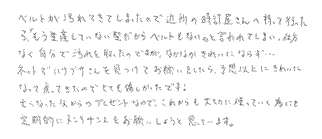 ベルトが汚れてきてしまったので近所の時計屋さんへ持って行った
ら、「もう生産していない型だからベルトもない」と言われてしまい、仕方
なく自分で汚れを取ったのですが、なかなかきれいにならず…
ネットでハナブサさんを見つけてお願いをしたら、予想以上にきれいに
なって戻ってきたのでとても嬉しかったです。
亡くなった父からのプレゼントなので、これからも大切に使っていく為にも
定期的にメンテナンスをお願いしようと思っています。